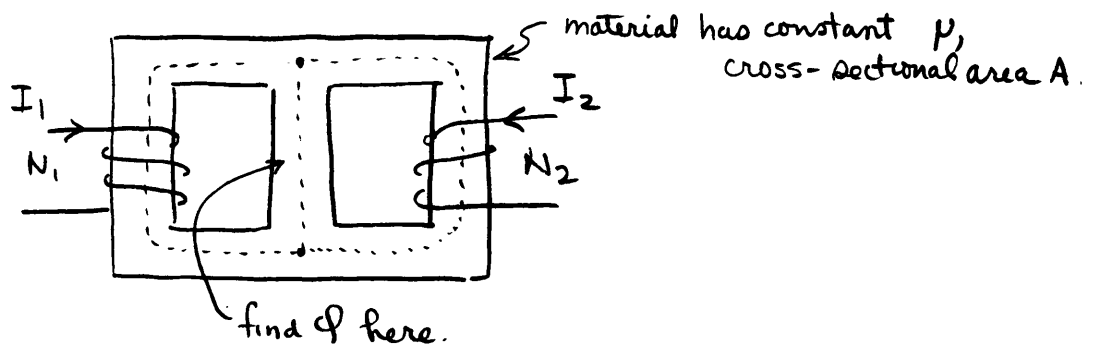 material has constant μ,
cross-sectional area A.
I₁
I₂
N₁
N₂
find φ here.